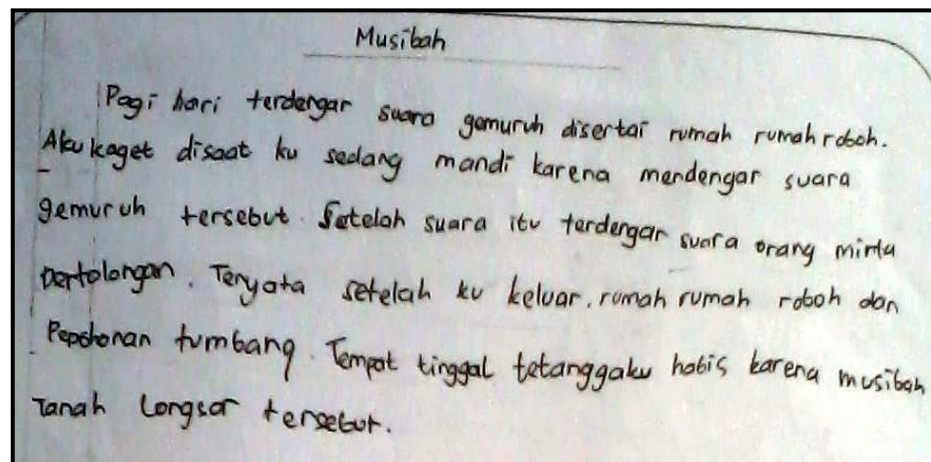 Musibah
Pagi hari terdengar suara gemuruh disertai rumah rumah roboh.
Aku kaget disaat ku sedang mandi karena mendengar suara
gemuruh tersebut. Setelah suara itu terdengar suara orang minta
pertolongan. Teryata setelah ku keluar. rumah rumah roboh dan
Pepohonan tumbang. Tempat tinggal tetanggaku habis karena musibah
Tanah longsor tersebut.